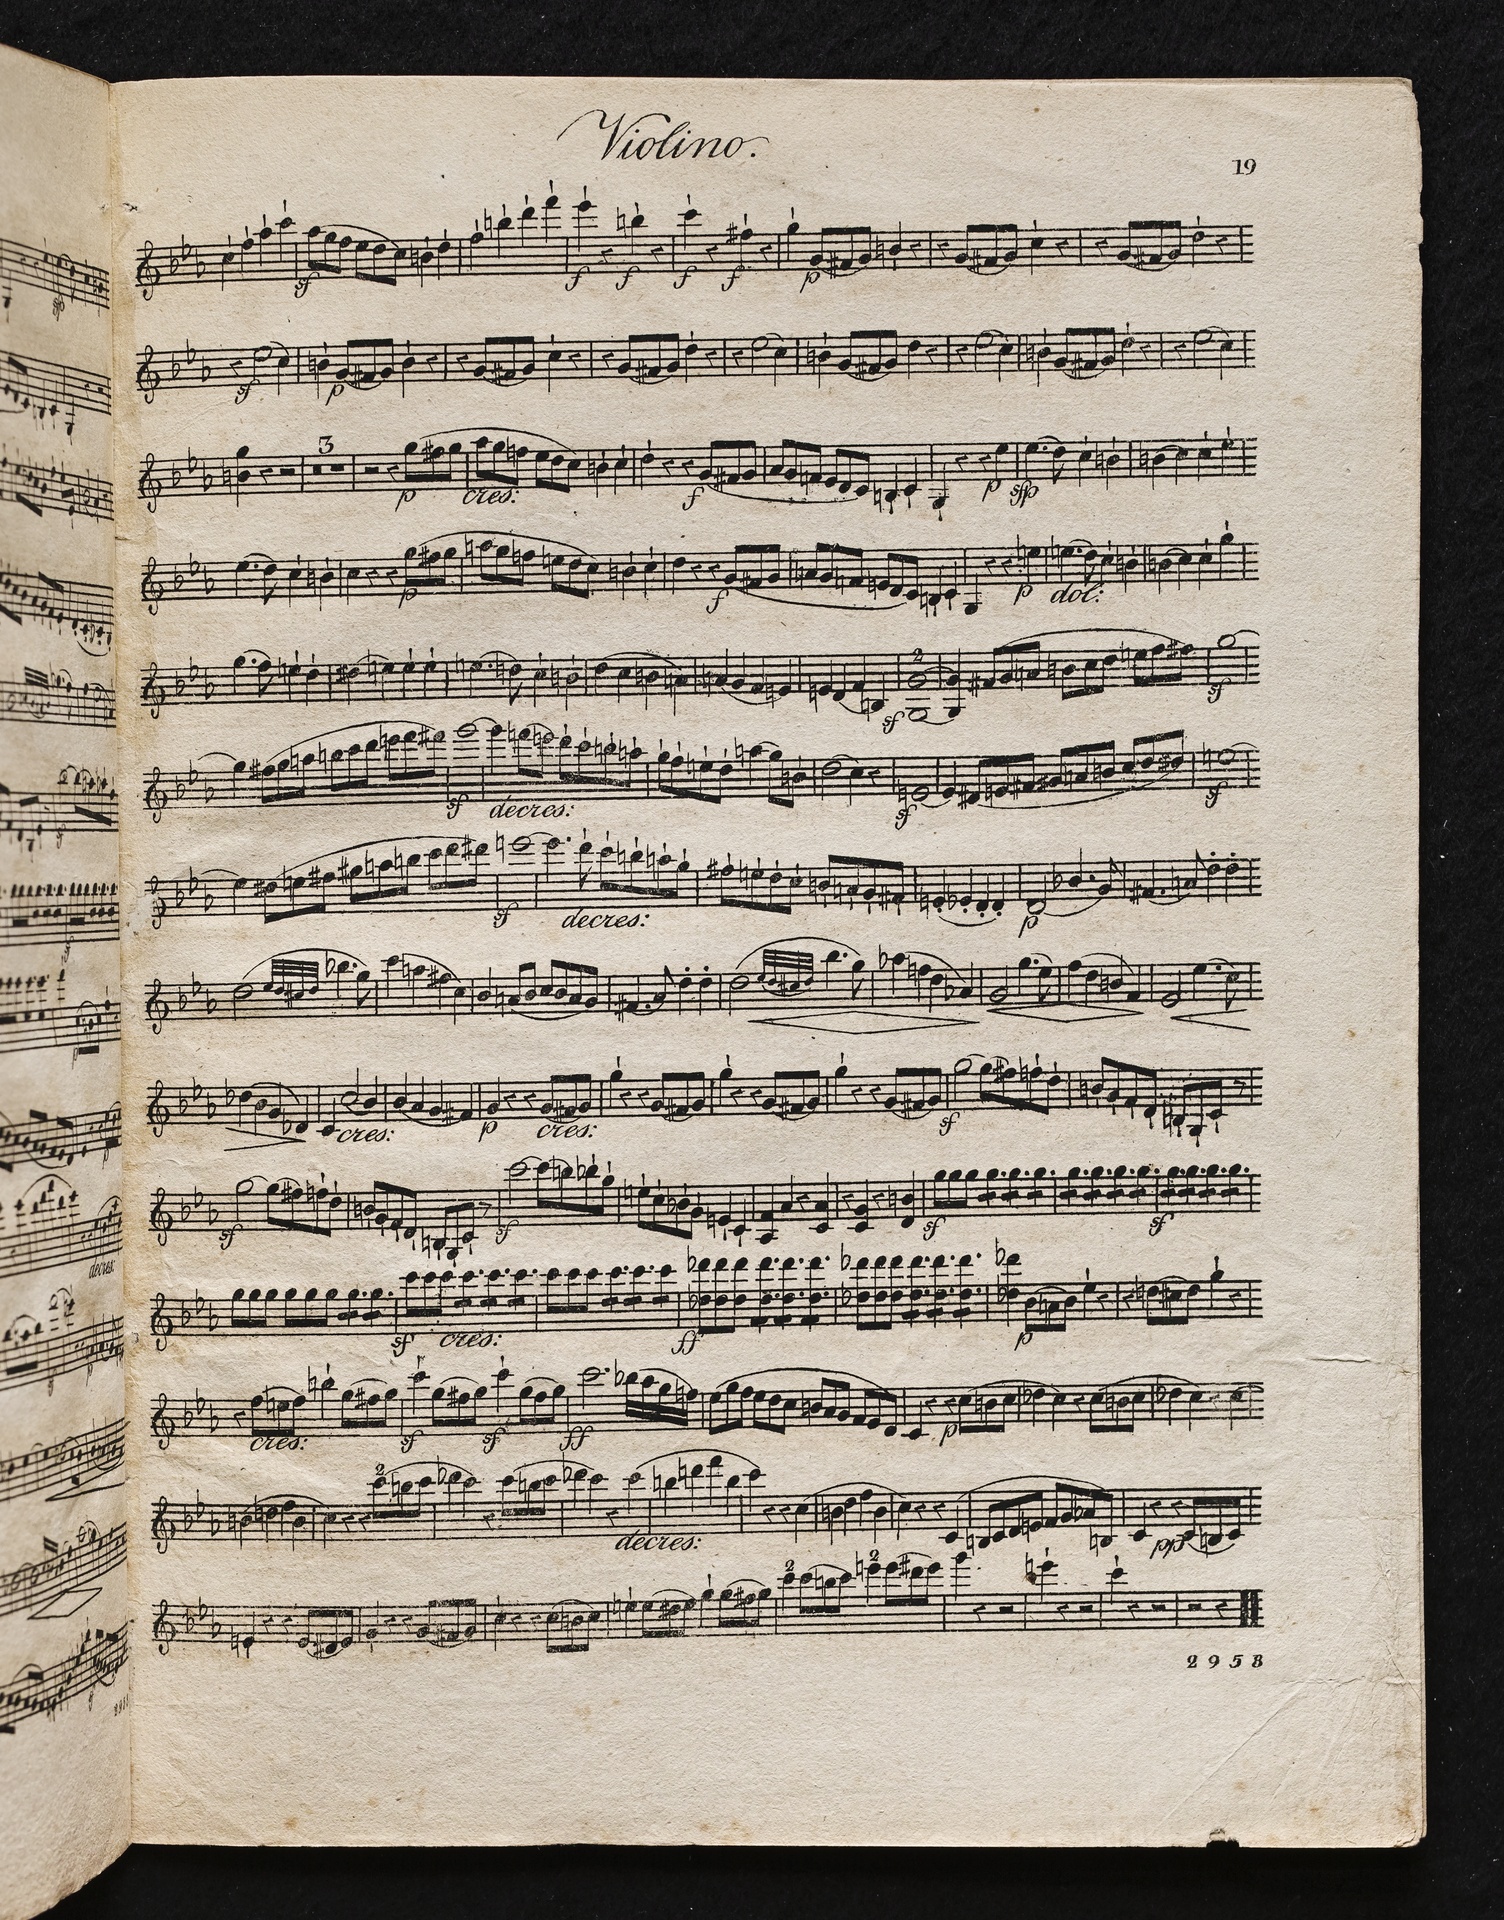 Violino.
19
sf f f f f p
sf p
3
p cres: f p sfp
p f p dol:
2
sf sf
sf decres: sf sf
sf decres: p
cres: p cres: sf
sf sf sf sf
sf cres: ff p
cres: sf sf ff p
2
decres: pp
2 2
2958